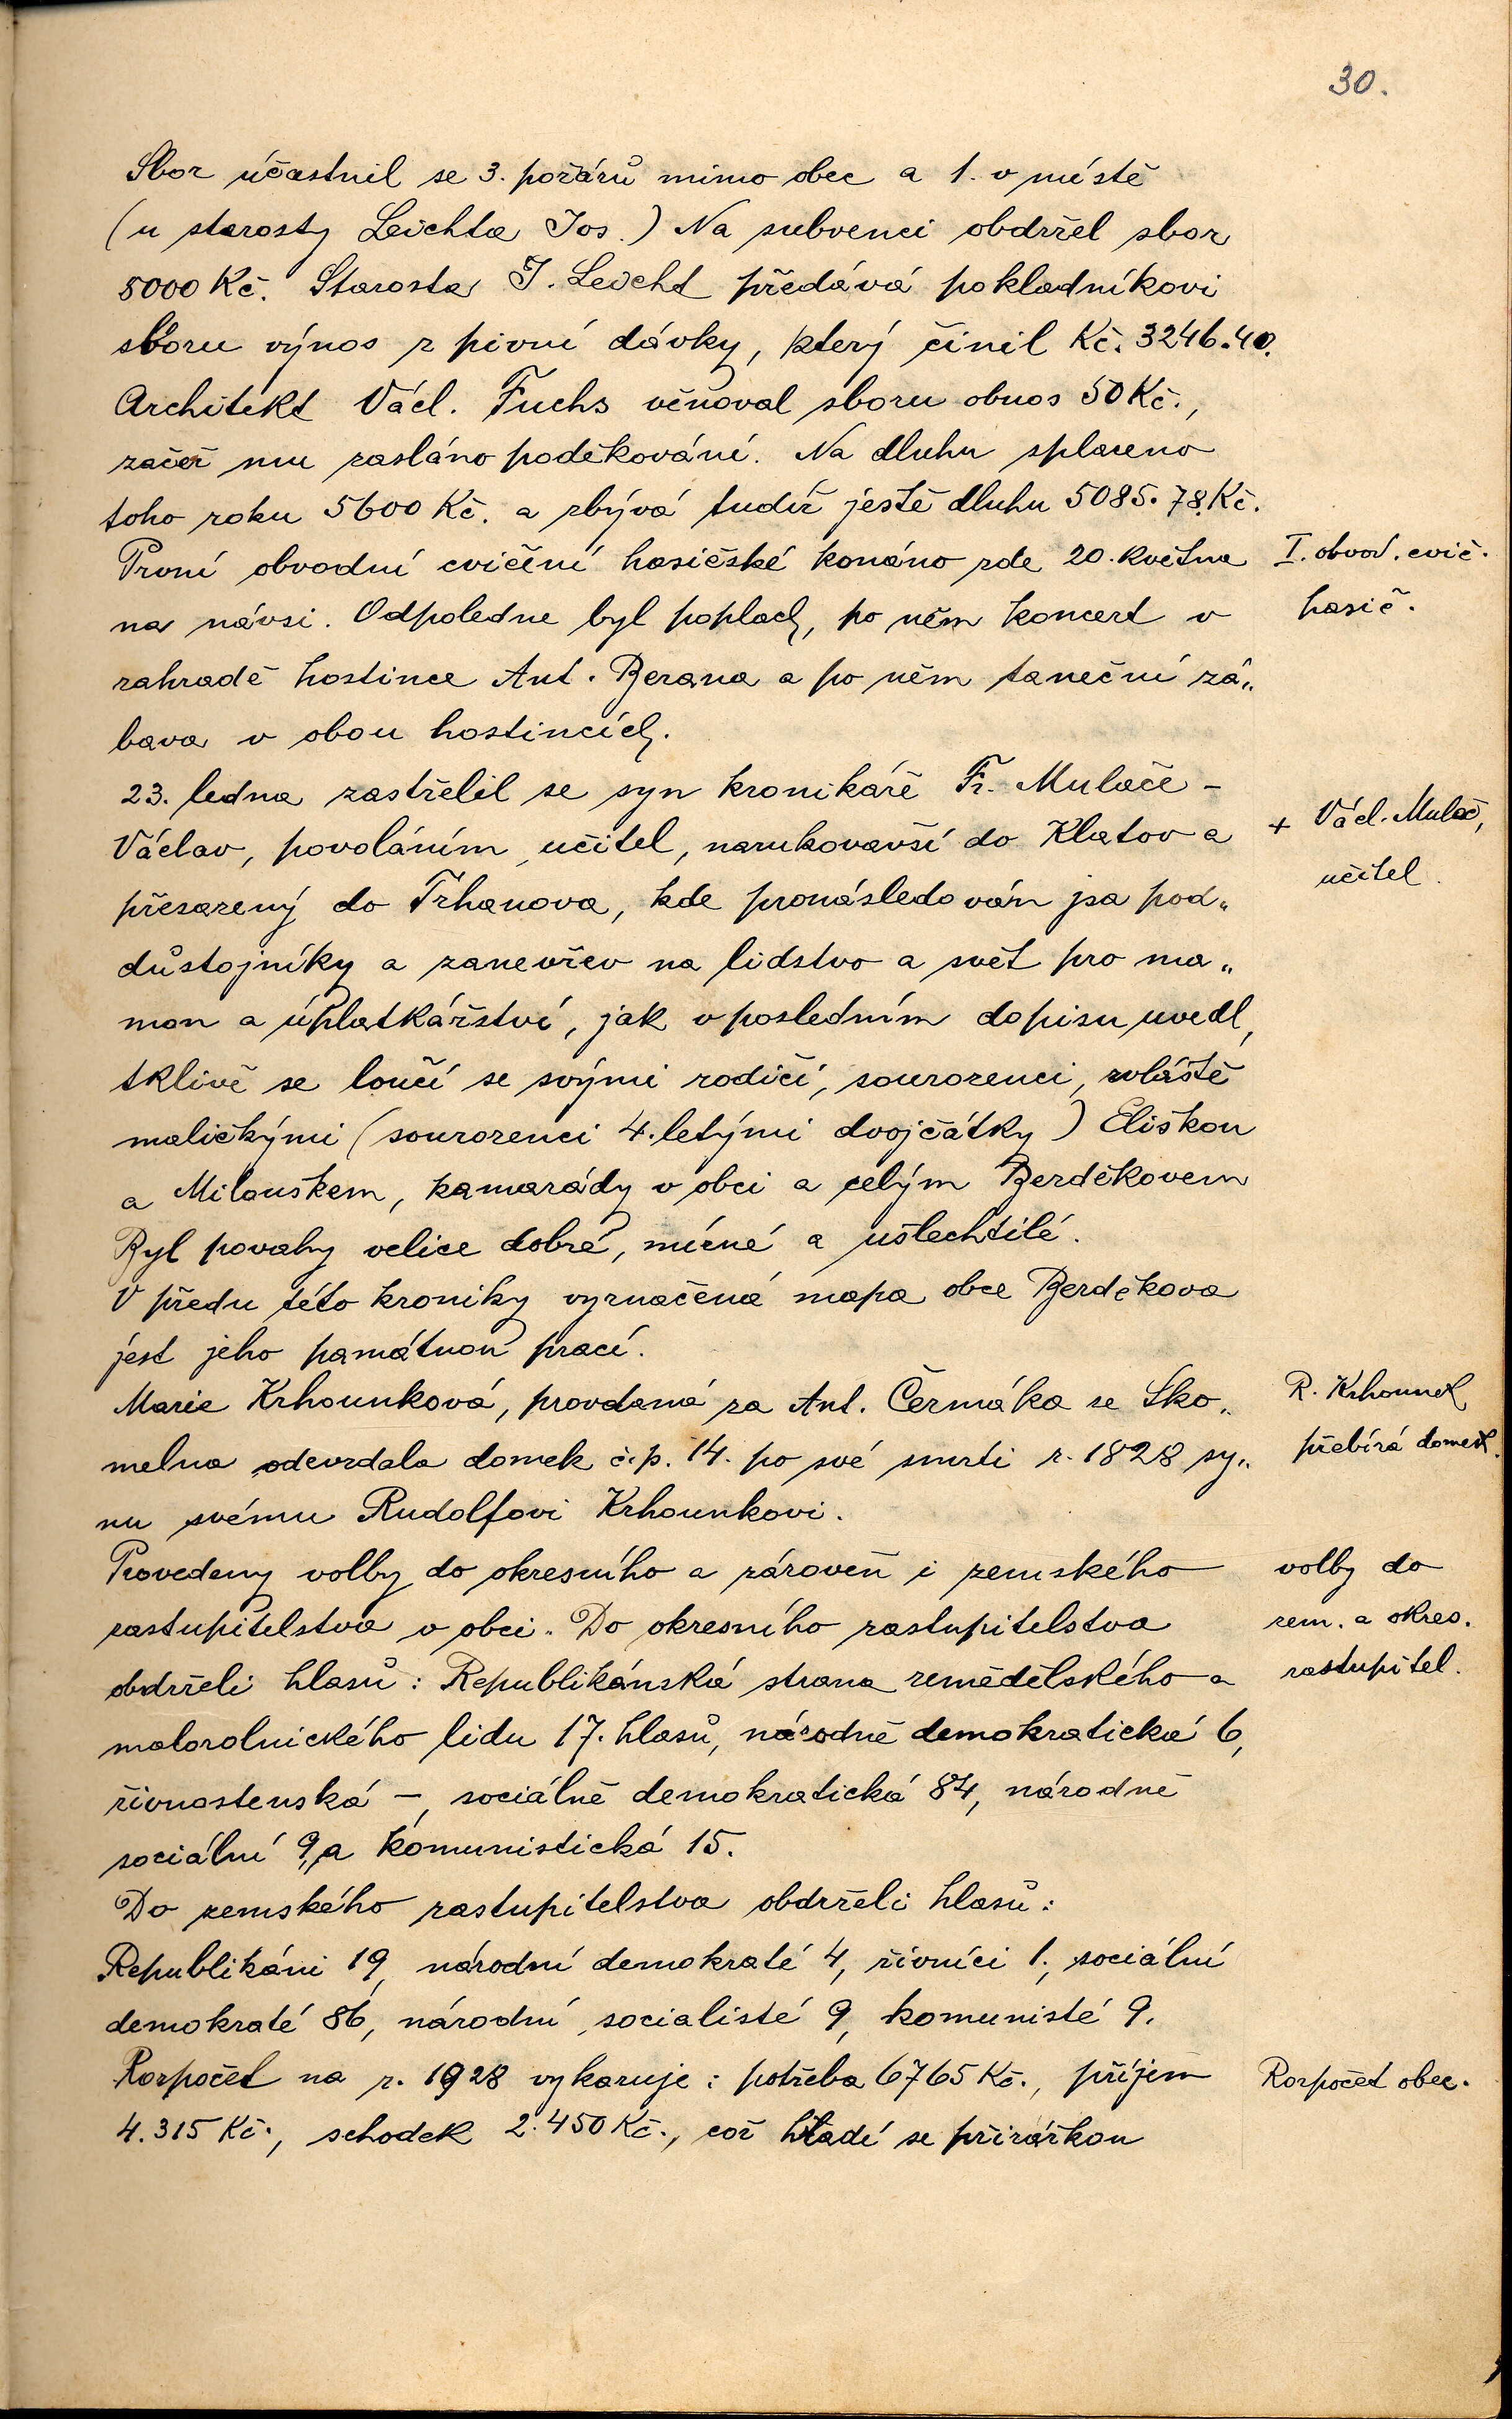 30.
Sbor účastnil se 3. požárů mimo obec a 1. v místě
(u starosty Leichta Jos.) Na subvenci obdržel sbor
5000 Kč. Starosta J. Leicht předává pokladníkovi
sboru výnos z pivní dávky, který činil Kč. 3246.40.
Architekt Václ. Fuchs věnoval sboru obnos 50 Kč.,
začež mu zasláno poděkování. Na dluhu splaceno
toho roku 5600 Kč. a zbývá tudíž ještě dluhu 5085.78 Kč.
První obvodní cvičení hasičské konáno zde 20. května
I. obvod. cvič.
na návsi. Odpoledne byl poplach, po něm koncert v
hasič.
zahradě hostince Ant. Berana a po něm taneční zá„
bava v obou hostincích.
23. ledna zastřelil se syn kronikáře Fr. Mulače –
Václav, povoláním učitel, narukovavší do Klatov a
+ Václ. Mulač,
učitel.
přesazený do Trhanova, kde pronásledován jsa pod„
důstojníky a zanevřev na lidstvo a svět pro ma„
mon a úplatkářství, jak v posledním dopisu uvedl,
tklivě se loučí se svými rodiči, sourozenci, zvláště
maličkými (sourozenci 4.letými dvojčátky) Eliškou
a Milouškem, kamarády v obci a celým Berděkovem
Byl povahy velice dobré, mírné a ušlechtilé.
V předu této kroniky vyznačená mapa obce Berděkova
jest jeho památnou prací.
Marie Krhounková, provdaná za Ant. Čermáka ze Sko„
R. Krhounek
melna odevzdala domek č.p. 14. po své smrti r. 1828 sy„
přebírá domek.
nu svému Rudolfovi Krhounkovi.
Provedeny volby do okresního a zároveň i zemského
volby do
zastupitelstva v obci. Do okresního zastupitelstva
zem. a okres.
obdrželi hlasů: Republikánská strana zemědělského a
zastupitel.
malorolnického lidu 17. hlasů, národně demokratická 6,
živnostenská –, sociálně demokratická 84, národně
sociální 9, a komunistická 15.
Do zemského zastupitelstva obdrželi hlasů:
Republikáni 19, národní demokraté 4, živníci 1., sociální
demokraté 86, národní socialisté 9, komunisté 9.
Rozpočet na r. 1928 vykazuje: potřeba 6765 Kč., příjem
Rozpočet obec.
4.315 Kč., schodek 2.450 Kč., což hladí se přirážkou